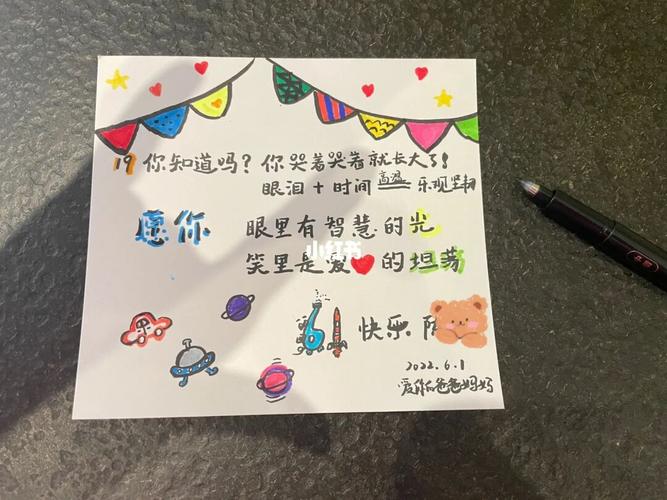 19 你知道吗？你哭着哭着就长大了！
眼泪 + 时间 高温 乐观坚韧
愿你 眼里有智慧的光
笑里是爱的坦荡
小红书
61 快乐
2022.6.1
爱你的爸爸妈妈